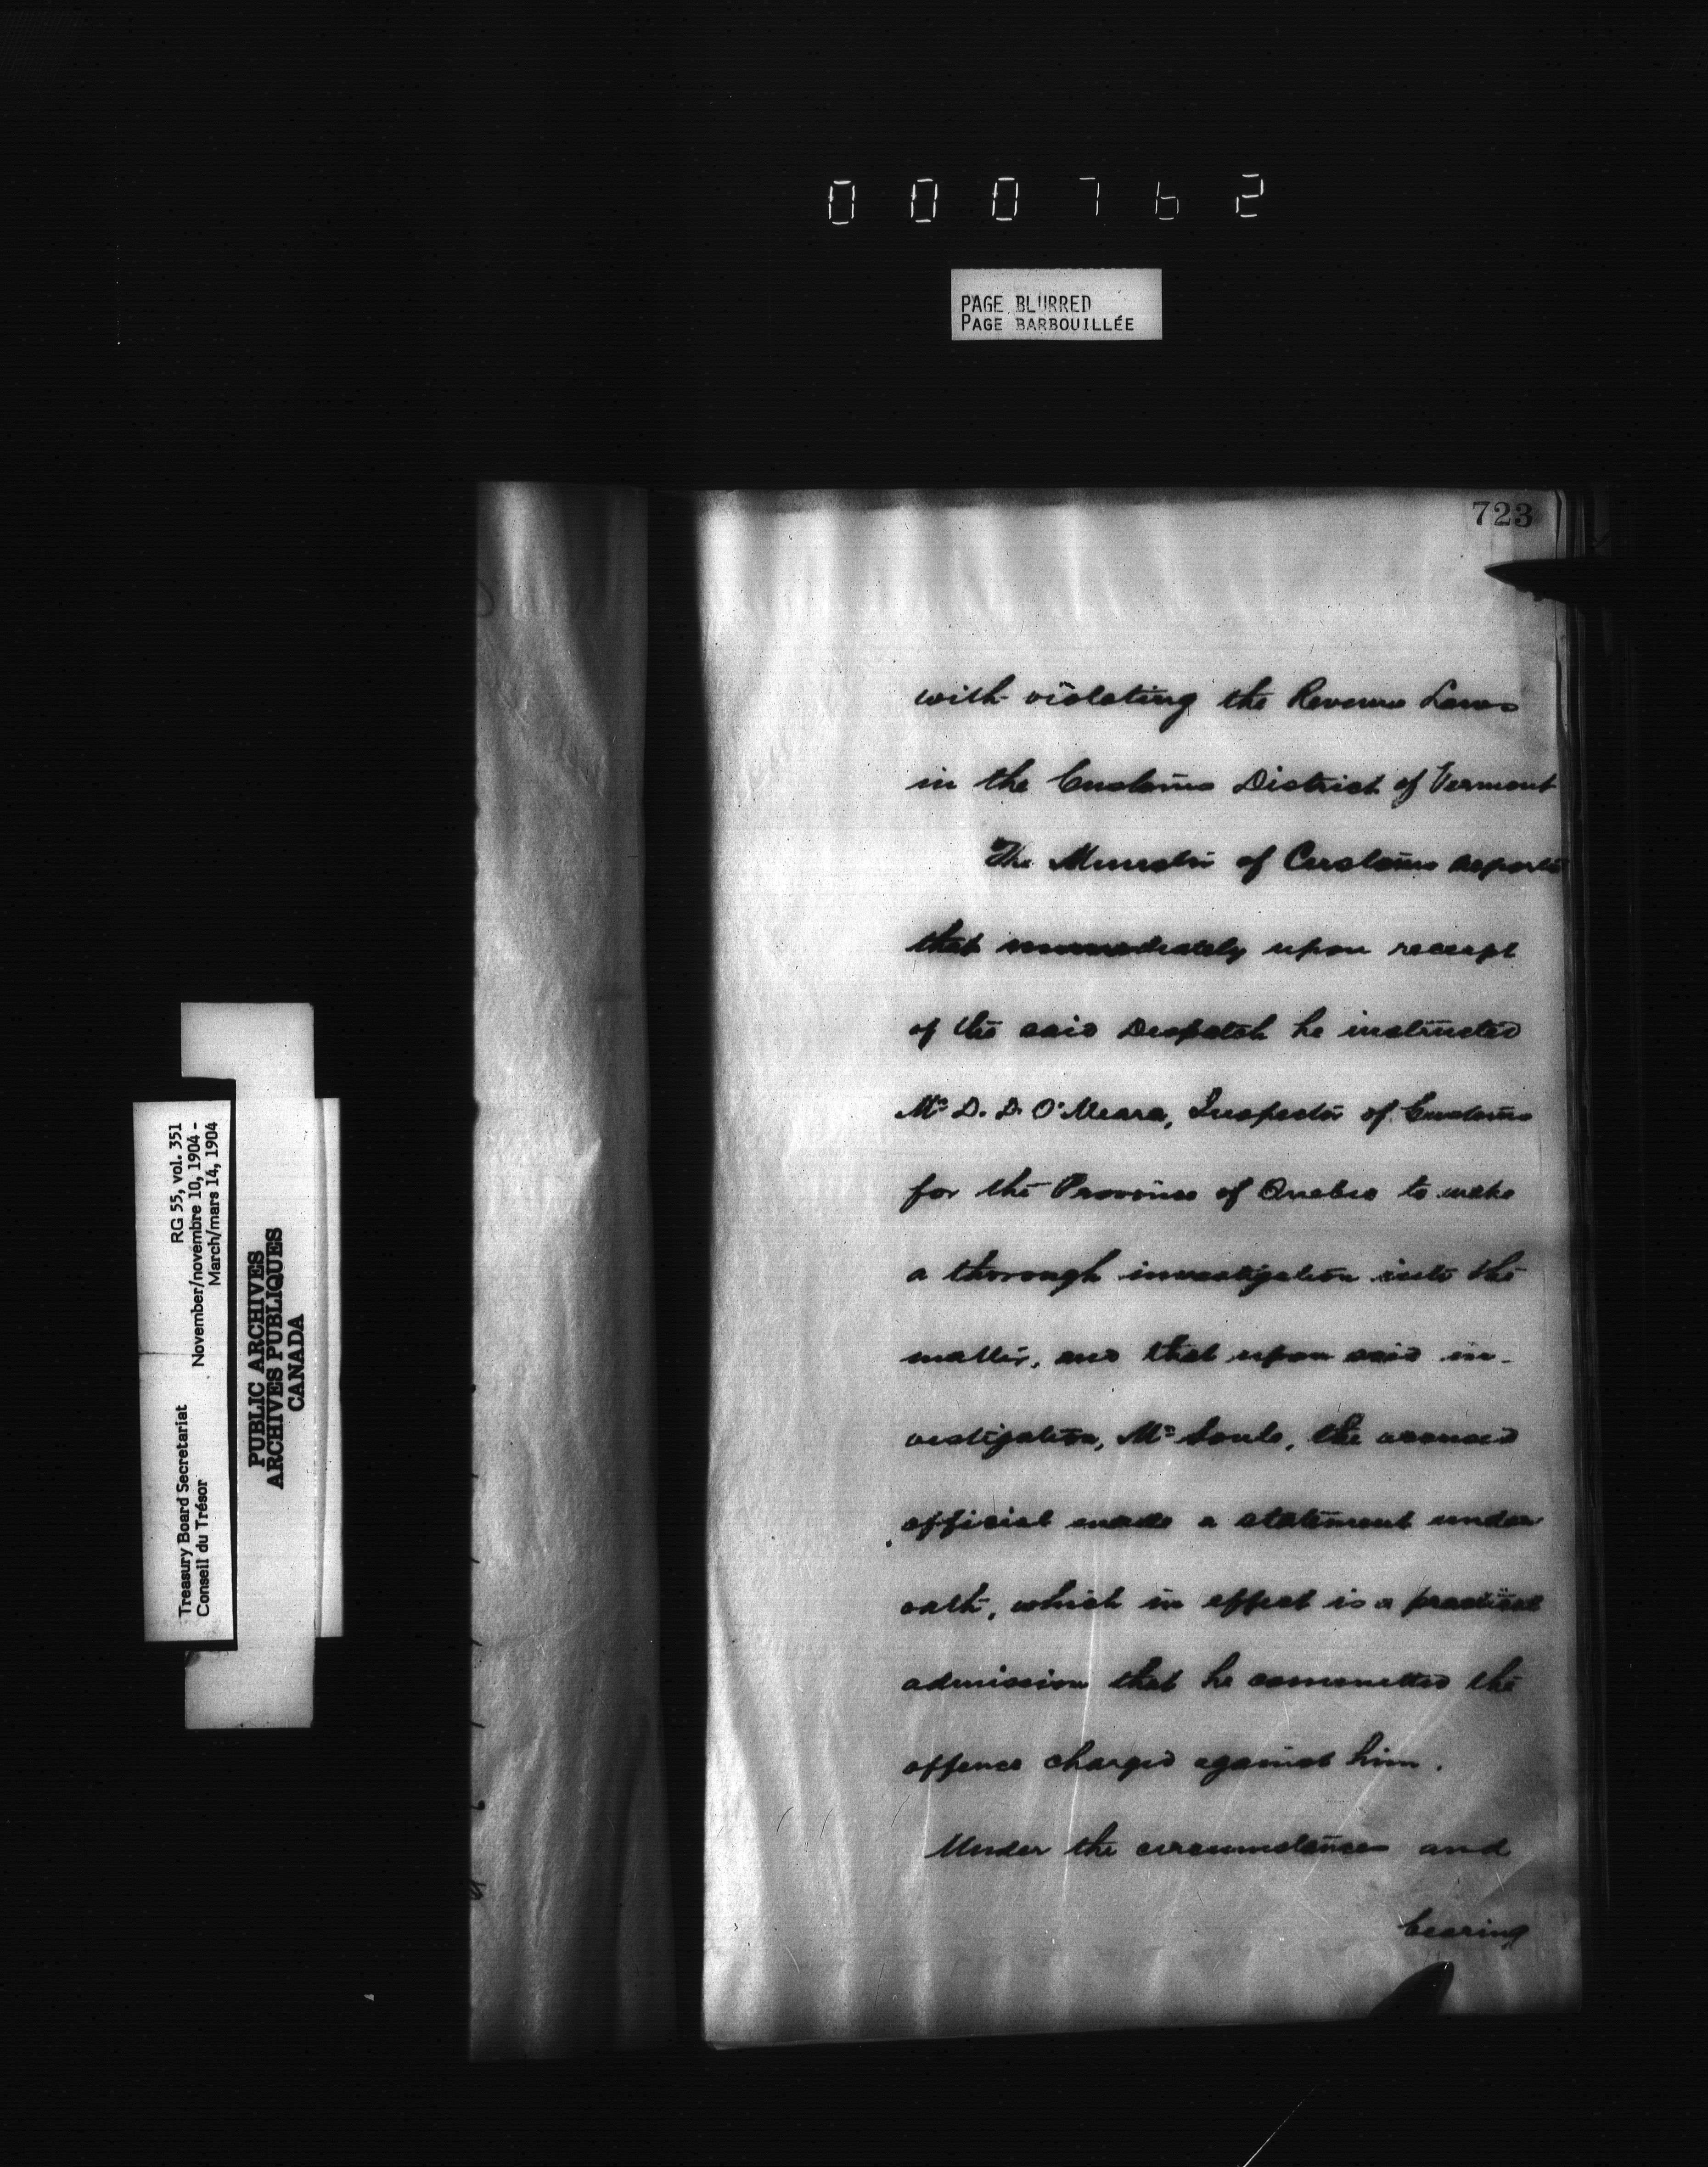 000762
PAGE BLURRED
PAGE BARBOUILLÉE
723
with violating the Revenue Laws
in the Customs District of Vermont
The Minister of Customs reports
that immediately upon receipt
of the said Despatch he instructed
Mr D. D. O'Meara, Inspector of Customs
for the Province of Quebec to make
a thorough investigation into the
matter, and that upon said in-
vestigation, Mr Soule, the accused
official made a statement under
oath, which in effect is a practical
admission that he committed the
offence charged against him.
Under the circumstances and
bearing
Treasury Board Secretariat RG 55, vol. 351
Conseil du Trésor November/novembre 10, 1904 -
March/mars 14, 1904
PUBLIC ARCHIVES
ARCHIVES PUBLIQUES
CANADA